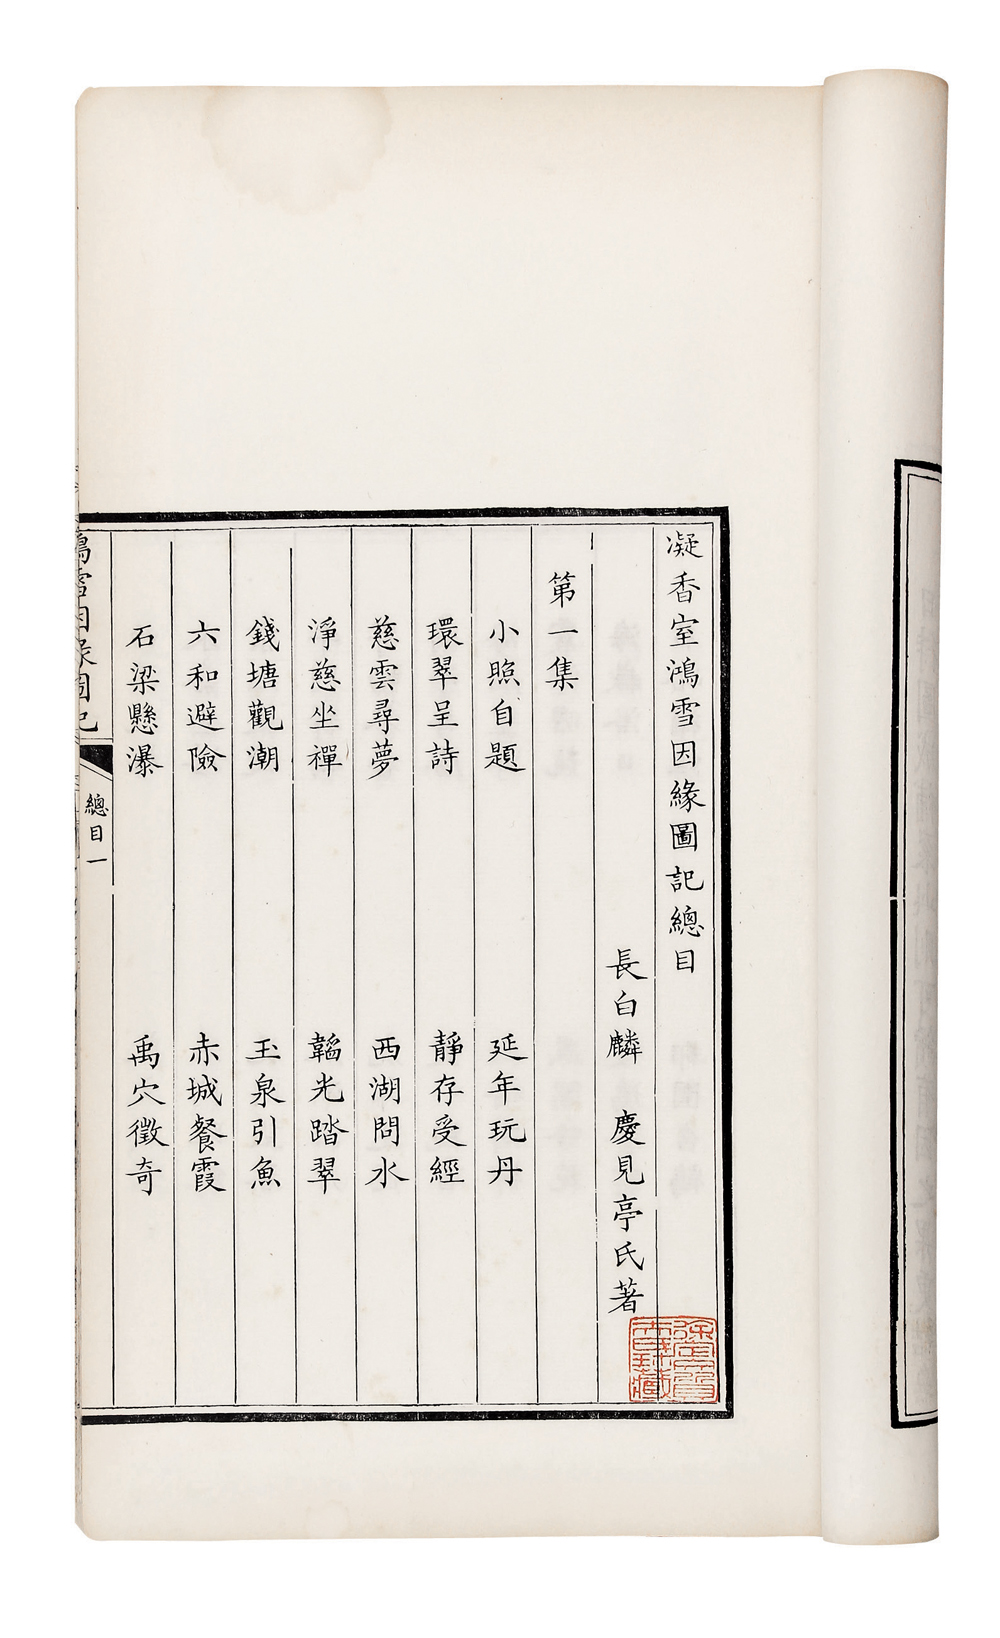 凝香室鴻雪因緣圖記總目
長白麟 慶見亭氏著
第一集
小照自題 延年玩丹
環翠呈詩 靜存受經
慈雲尋夢 西湖問水
淨慈坐禪 韜光踏翠
錢塘觀潮 玉泉引魚
六和避險 赤城餐霞
石梁懸瀑 禹穴徵奇
鴻雪因緣圖記
總目一